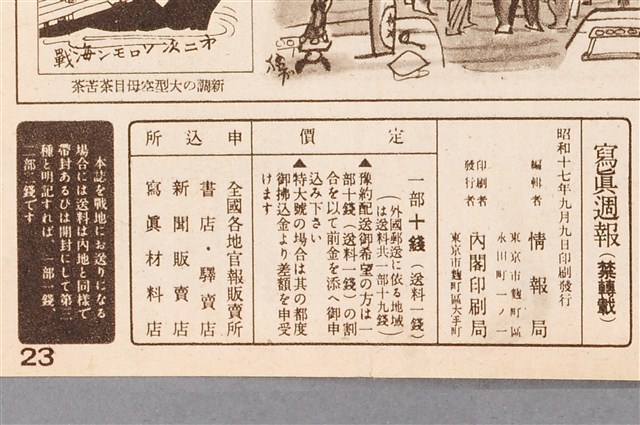 戰海ンモロソ次二オ
茶苦茶目母空型大の調新
寫眞週報(禁轉載)
昭和十七年九月九日印刷發行
編輯者 情報局
東京市麴町區
永田町一ノ一
印刷者
發行者
內閣印刷局
東京市麴町區大手町
定價
一部十錢(送料一錢)
(外國郵送に依る地域
は送料共一部十九錢)
▲豫約配送御希望の方は一
部十錢(送料一錢)の割
合を以て前金を添へ御申
込み下さい
▲特大號の場合は其の都度
御拂込金より差額を申受
けます
申込所
全國各地官報販賣所
書店・驛賣店
新聞販賣店
寫眞材料店
本誌を戰地にお送りになる
場合には送料は內地と同樣で
帶封あるひは開封にして第三
種と明記すれば、一部一錢、
二部一錢です
23